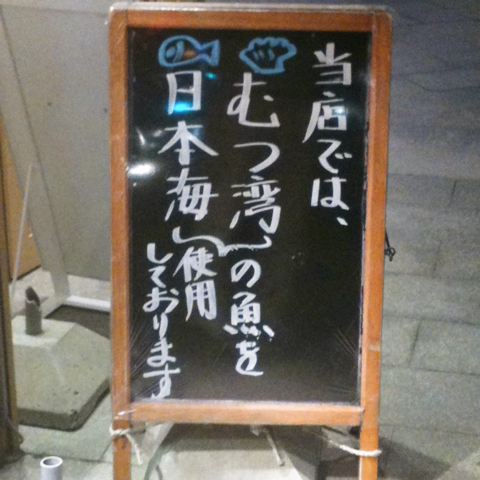 当店では、
むつ湾
日本海
の魚を
使用
しております